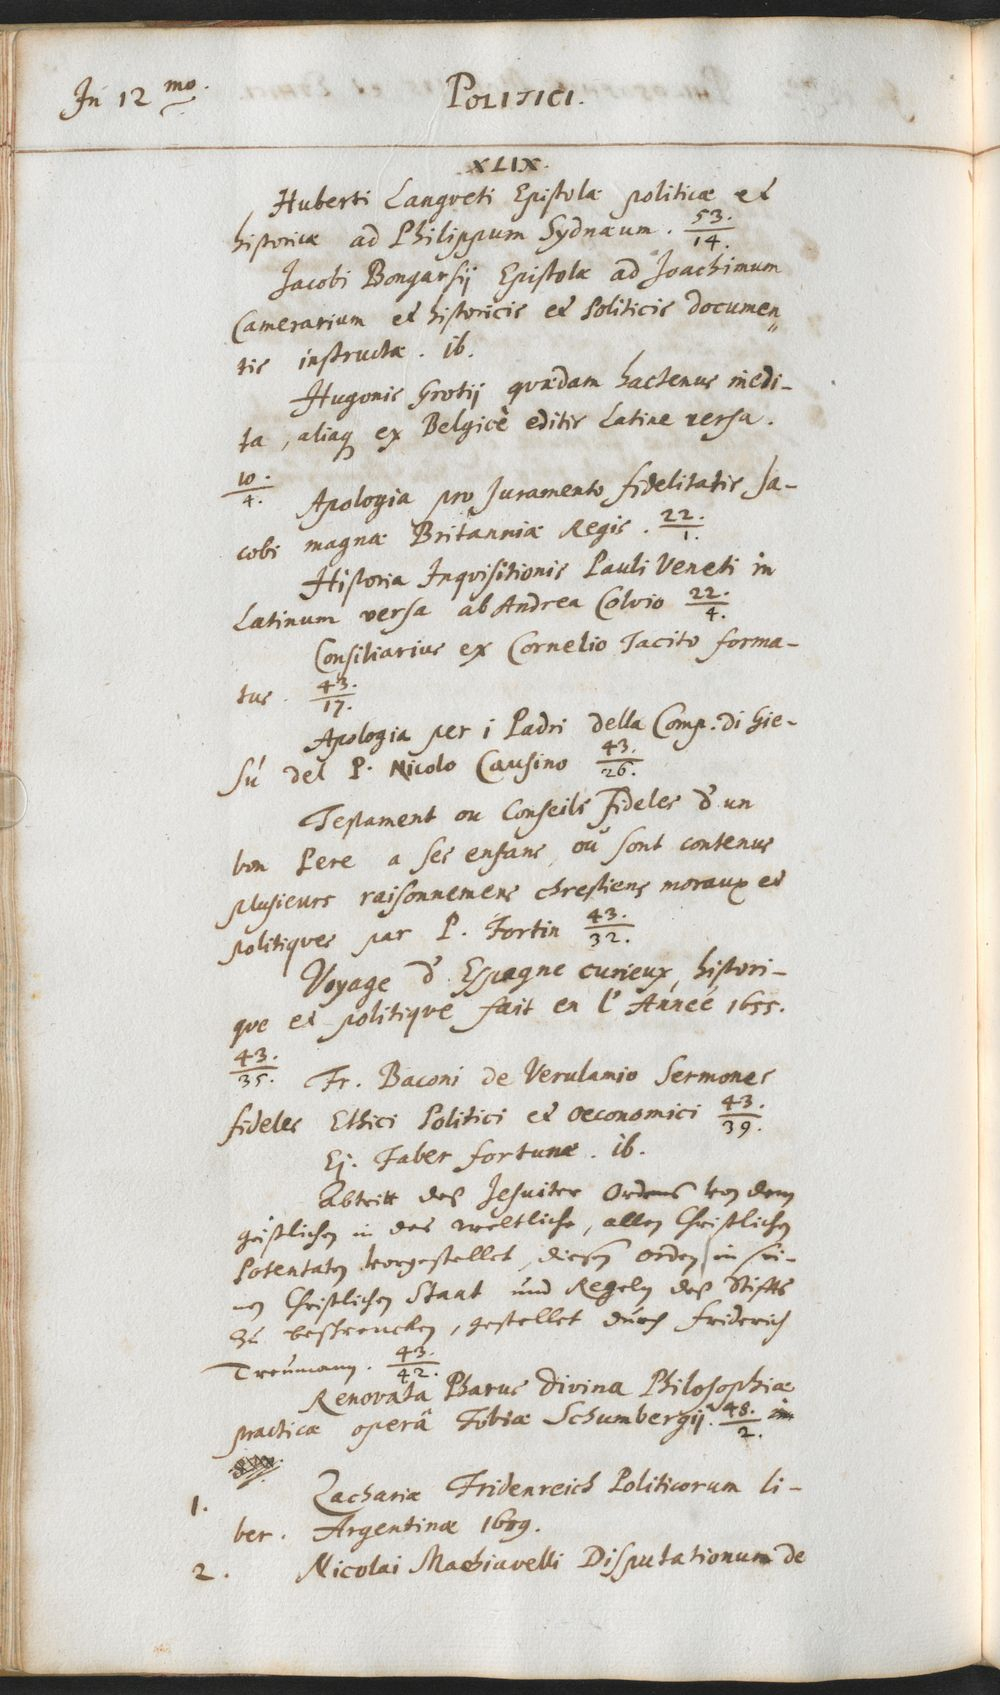 In 12 mo.
POLITICI.
XLIX.
Huberti Langveti Epistolæ politicæ et
historicæ ad Philippum Sydnæum. 53./14.
Jacobi Bongarsij Epistolæ ad Joachimum
Camerarium et historicis et Politicis documen„
tis instructæ. ib.
Hugonis Grotij quædam hactenus inedi-
ta, aliaq ex Belgicè editis Latine versa.
10./4. Apologia pro Juramento fidelitatis Ja-
cobi magnæ Britanniæ Regis. 22./1.
Historia Inquisitionis Pauli Veneti in
Latinum versa ab Andrea Colvio 22./4.
Consiliarius ex Cornelio Tacito forma-
tus. 43./17.
Apologia per i Padri della Comp. di Gie-
sú del P. Nicolo Causino 43./26.
Testament ou Conseils fideles d'un
bon Pere a ses enfans, où sont contenus
plusieurs raisonnemens chrestiens moraux et
politiques par P. Fortin 43./32.
Voyage d'Espagne curieux, histori-
que et politique fait en l'Année 1655.
43./35. Fr. Baconi de Verulamio Sermones
fideles Ethici Politici et oeconomici 43./39.
Ej. Faber fortunæ. ib.
Abtritt deß Jesuiter Ordens von dem
geistlichen in das weltliche, allen Christlichen
Potentaten vorgestellet, diesen orden in sei-
nen Christlichen Staat und Regeln deß Stiffts
zu beschrencken, gestellet durch Friderich
Treumann. 43./42.
Renovata Pharus divina Philosophiæ
practicæ operâ Tobiæ Schumbergij. 48./2.
1. Zachariæ Fridenreich Politicorum li-
ber. Argentinæ 1609.
2. Nicolai Machiavelli Disputationum de